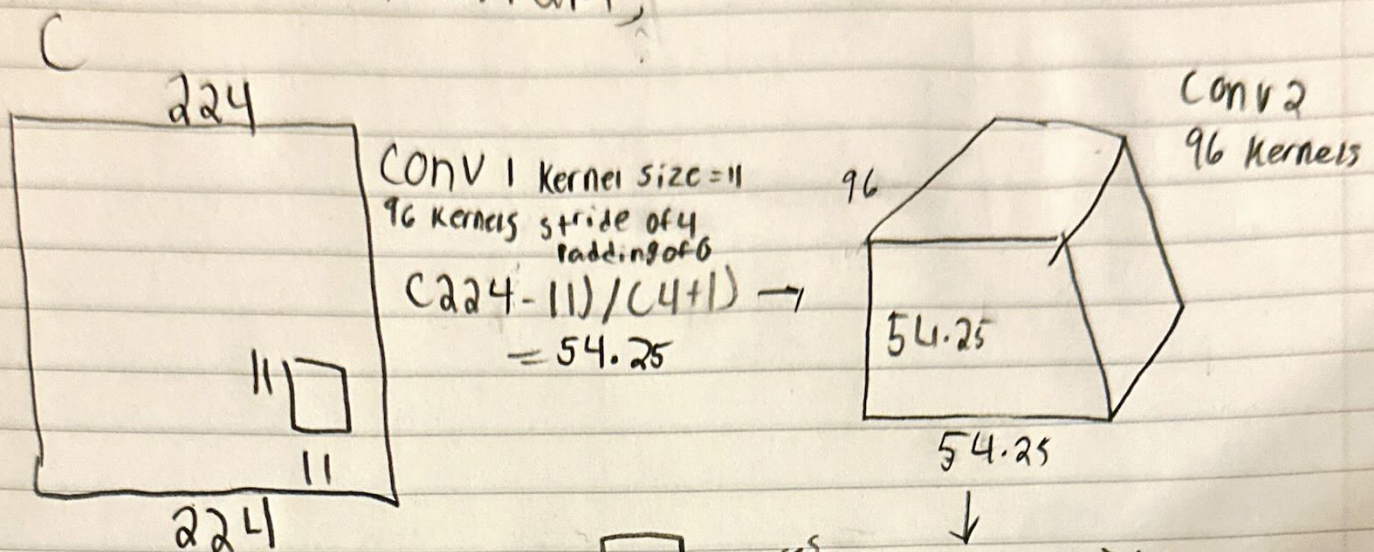 C
224
Conv 1 Kernel size = 11
96 Kernels stride of 4
Padding of 0
(224 - 11) / (4+1) →
= 54.25
11
11
224
96
54.25
54.25
↓
Conv2
96 Kernels